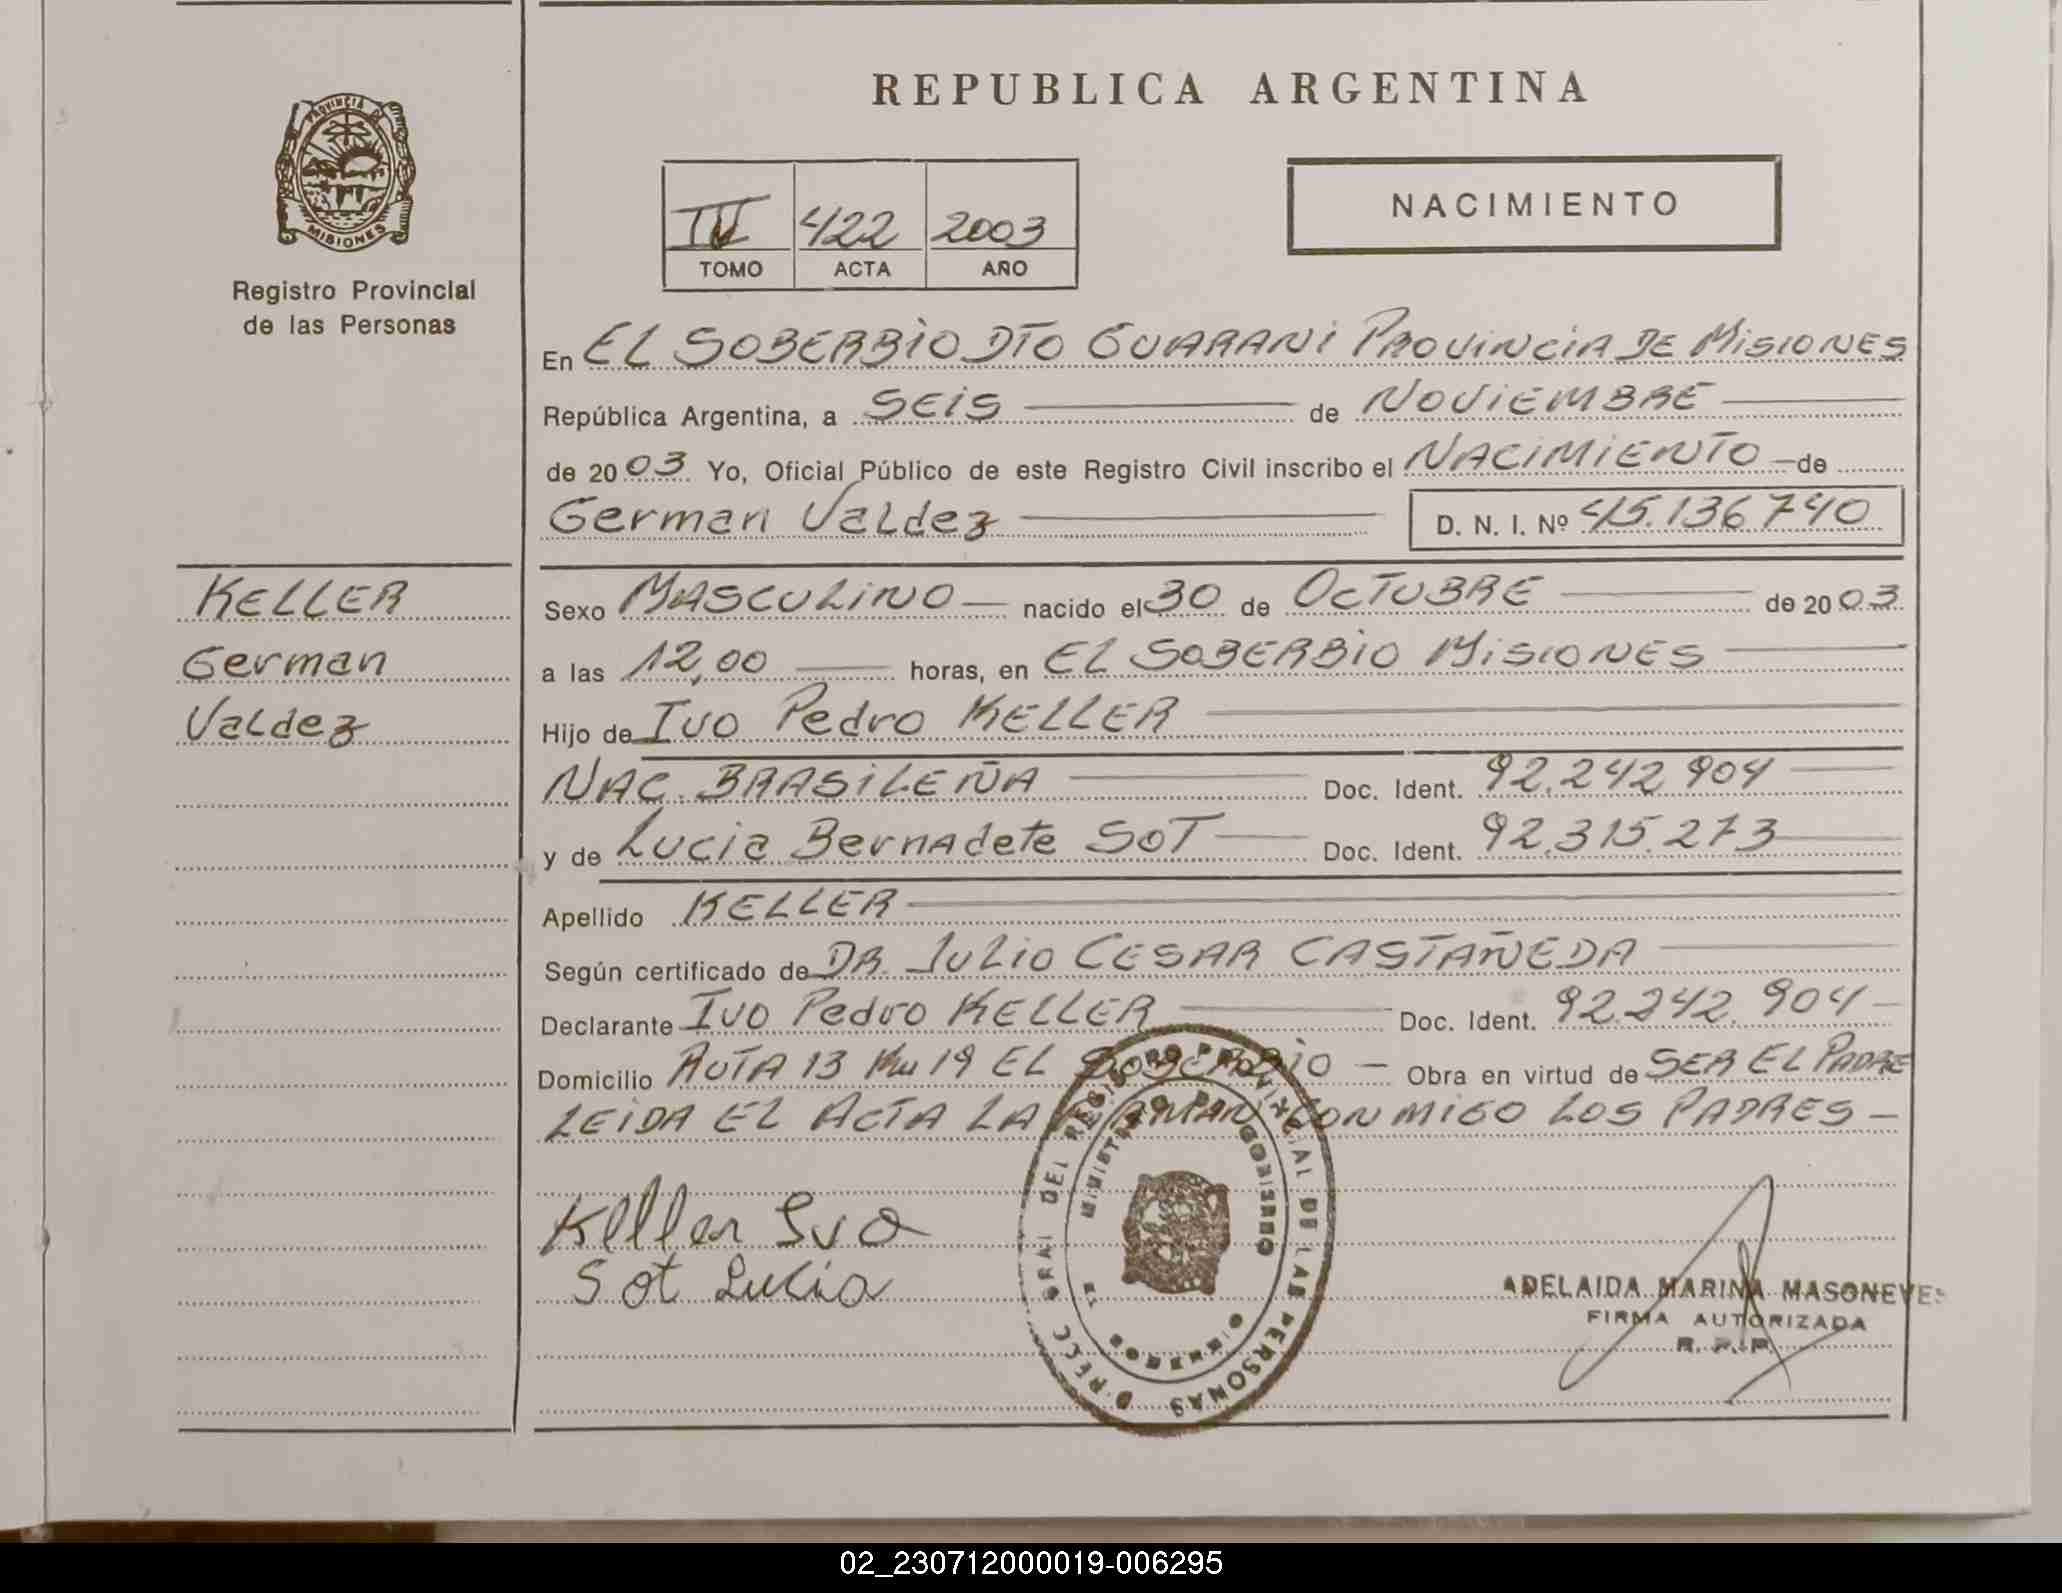 PROVINCIA DE
MISIONES
Registro Provincial
de las Personas
REPUBLICA ARGENTINA
IV 422 2003
TOMO ACTA AÑO
NACIMIENTO
En EL SOBERBIO DTO GUARANI PROVINCIA DE MISIONES
República Argentina, a SEIS de NOVIEMBRE
de 2003 Yo, Oficial Público de este Registro Civil inscribo el NACIMIENTO de
German Valdez D. N. I. Nº 45.136740
KELLER
German
Valdez
Sexo MASCULINO nacido el 30 de OCTUBRE de 2003
a las 12,00 horas, en EL SOBERBIO MISIONES
Hijo de Ivo Pedro KELLER
NAC. BRASILEÑA Doc. Ident. 92.242.904
y de Lucia Bernadete SOT Doc. Ident. 92.315.273
Apellido KELLER
Según certificado de DR. JULIO CESAR CASTAÑEDA
Declarante Ivo Pedro KELLER Doc. Ident. 92.242.904
Domicilio RUTA 13 Km 19 EL SOBERBIO Obra en virtud de SER EL PADRE
LEIDA EL ACTA LA FIRMAN CONMIGO LOS PADRES
Keller Ivo
Sot Lucia
DIRECC. GRAL. DEL REGISTRO PROVINCIAL DE LAS PERSONAS
MINISTERIO DE GOBIERNO
ADELAIDA MARINA MASONEVES
FIRMA AUTORIZADA
R. P. P.
02_230712000019-006295